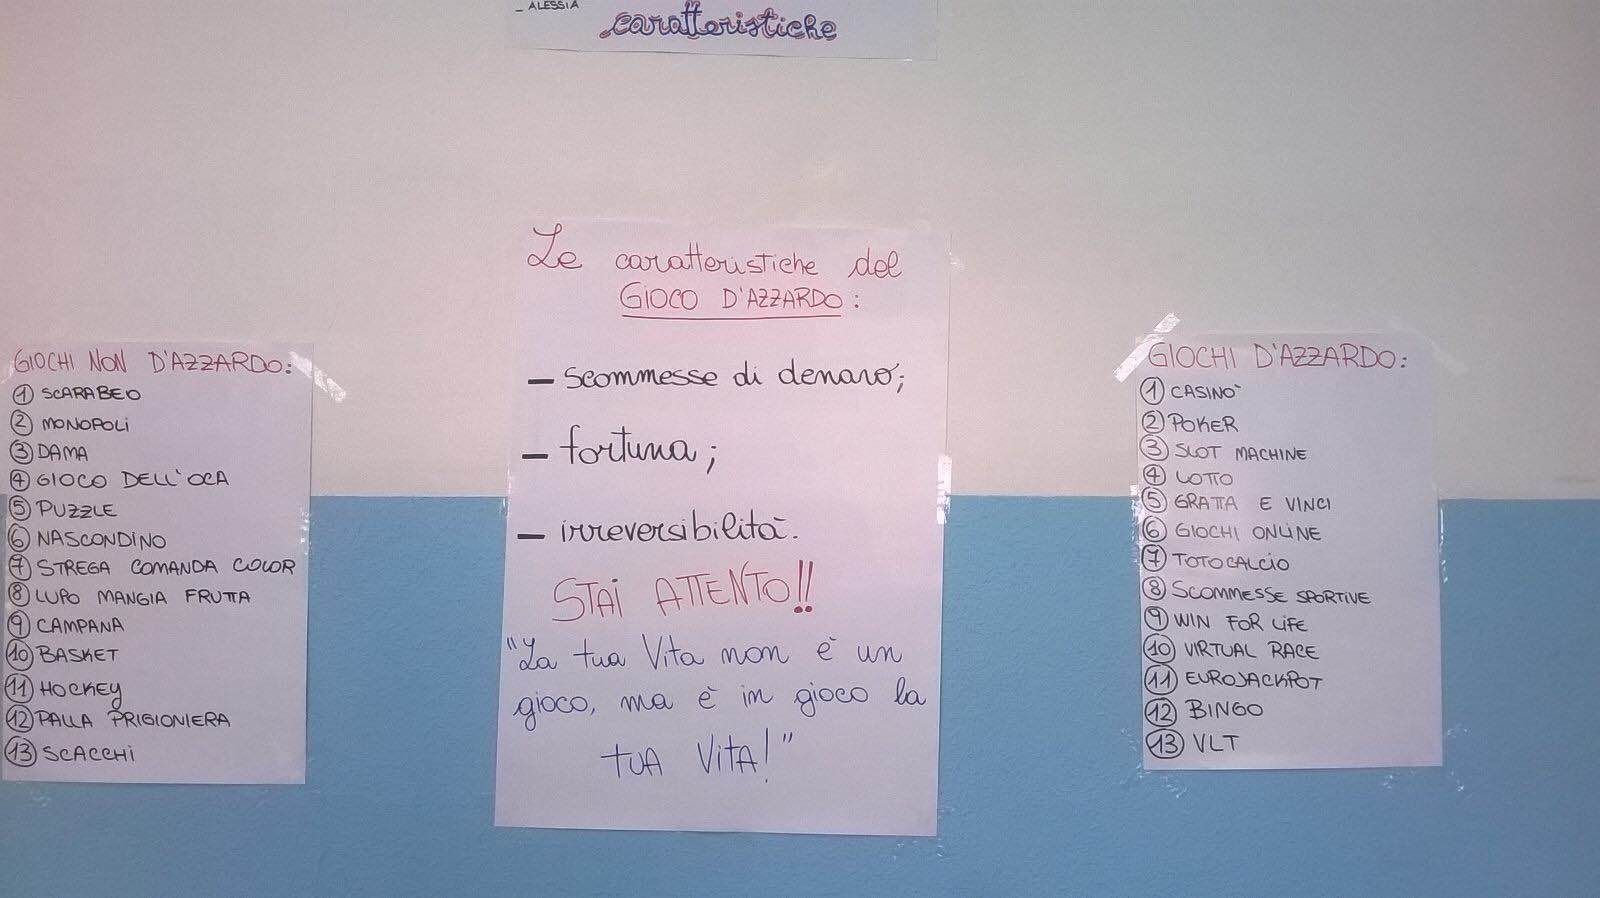 - ALESSIA
caratteristiche
GIOCHI NON D'AZZARDO:
1 SCARABEO
2 MONOPOLI
3 DAMA
4 GIOCO DELL'OCA
5 PUZZLE
6 NASCONDINO
7 STREGA COMANDA COLOR
8 LUPO MANGIA FRUTTA
9 CAMPANA
10 BASKET
11 HOCKEY
12 PALLA PRIGIONIERA
13 SCACCHI
Le caratteristiche del
GIOCO D'AZZARDO:
- scommesse di denaro;
- fortuna;
- irreversibilità.
STAI ATTENTO!!
"La tua Vita non è un
gioco, ma è in gioco la
TUA VITA!"
GIOCHI D'AZZARDO:
1 CASINO'
2 POKER
3 SLOT MACHINE
4 LOTTO
5 GRATTA E VINCI
6 GIOCHI ONLINE
7 TOTOCALCIO
8 SCOMMESSE SPORTIVE
9 WIN FOR LIFE
10 VIRTUAL RACE
11 EUROJACKPOT
12 BINGO
13 VLT